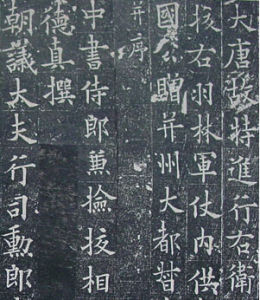 大唐故特進行右衛
挍右羽林軍仗内供
國公贈并州大都督
并序
中書侍郎兼撿挍相
德真撰
朝議大夫行司勳郎